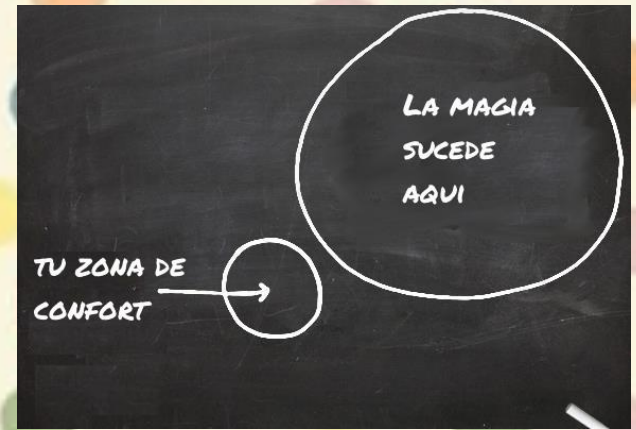 LA MAGIA
SUCEDE
AQUI
TU ZONA DE
CONFORT